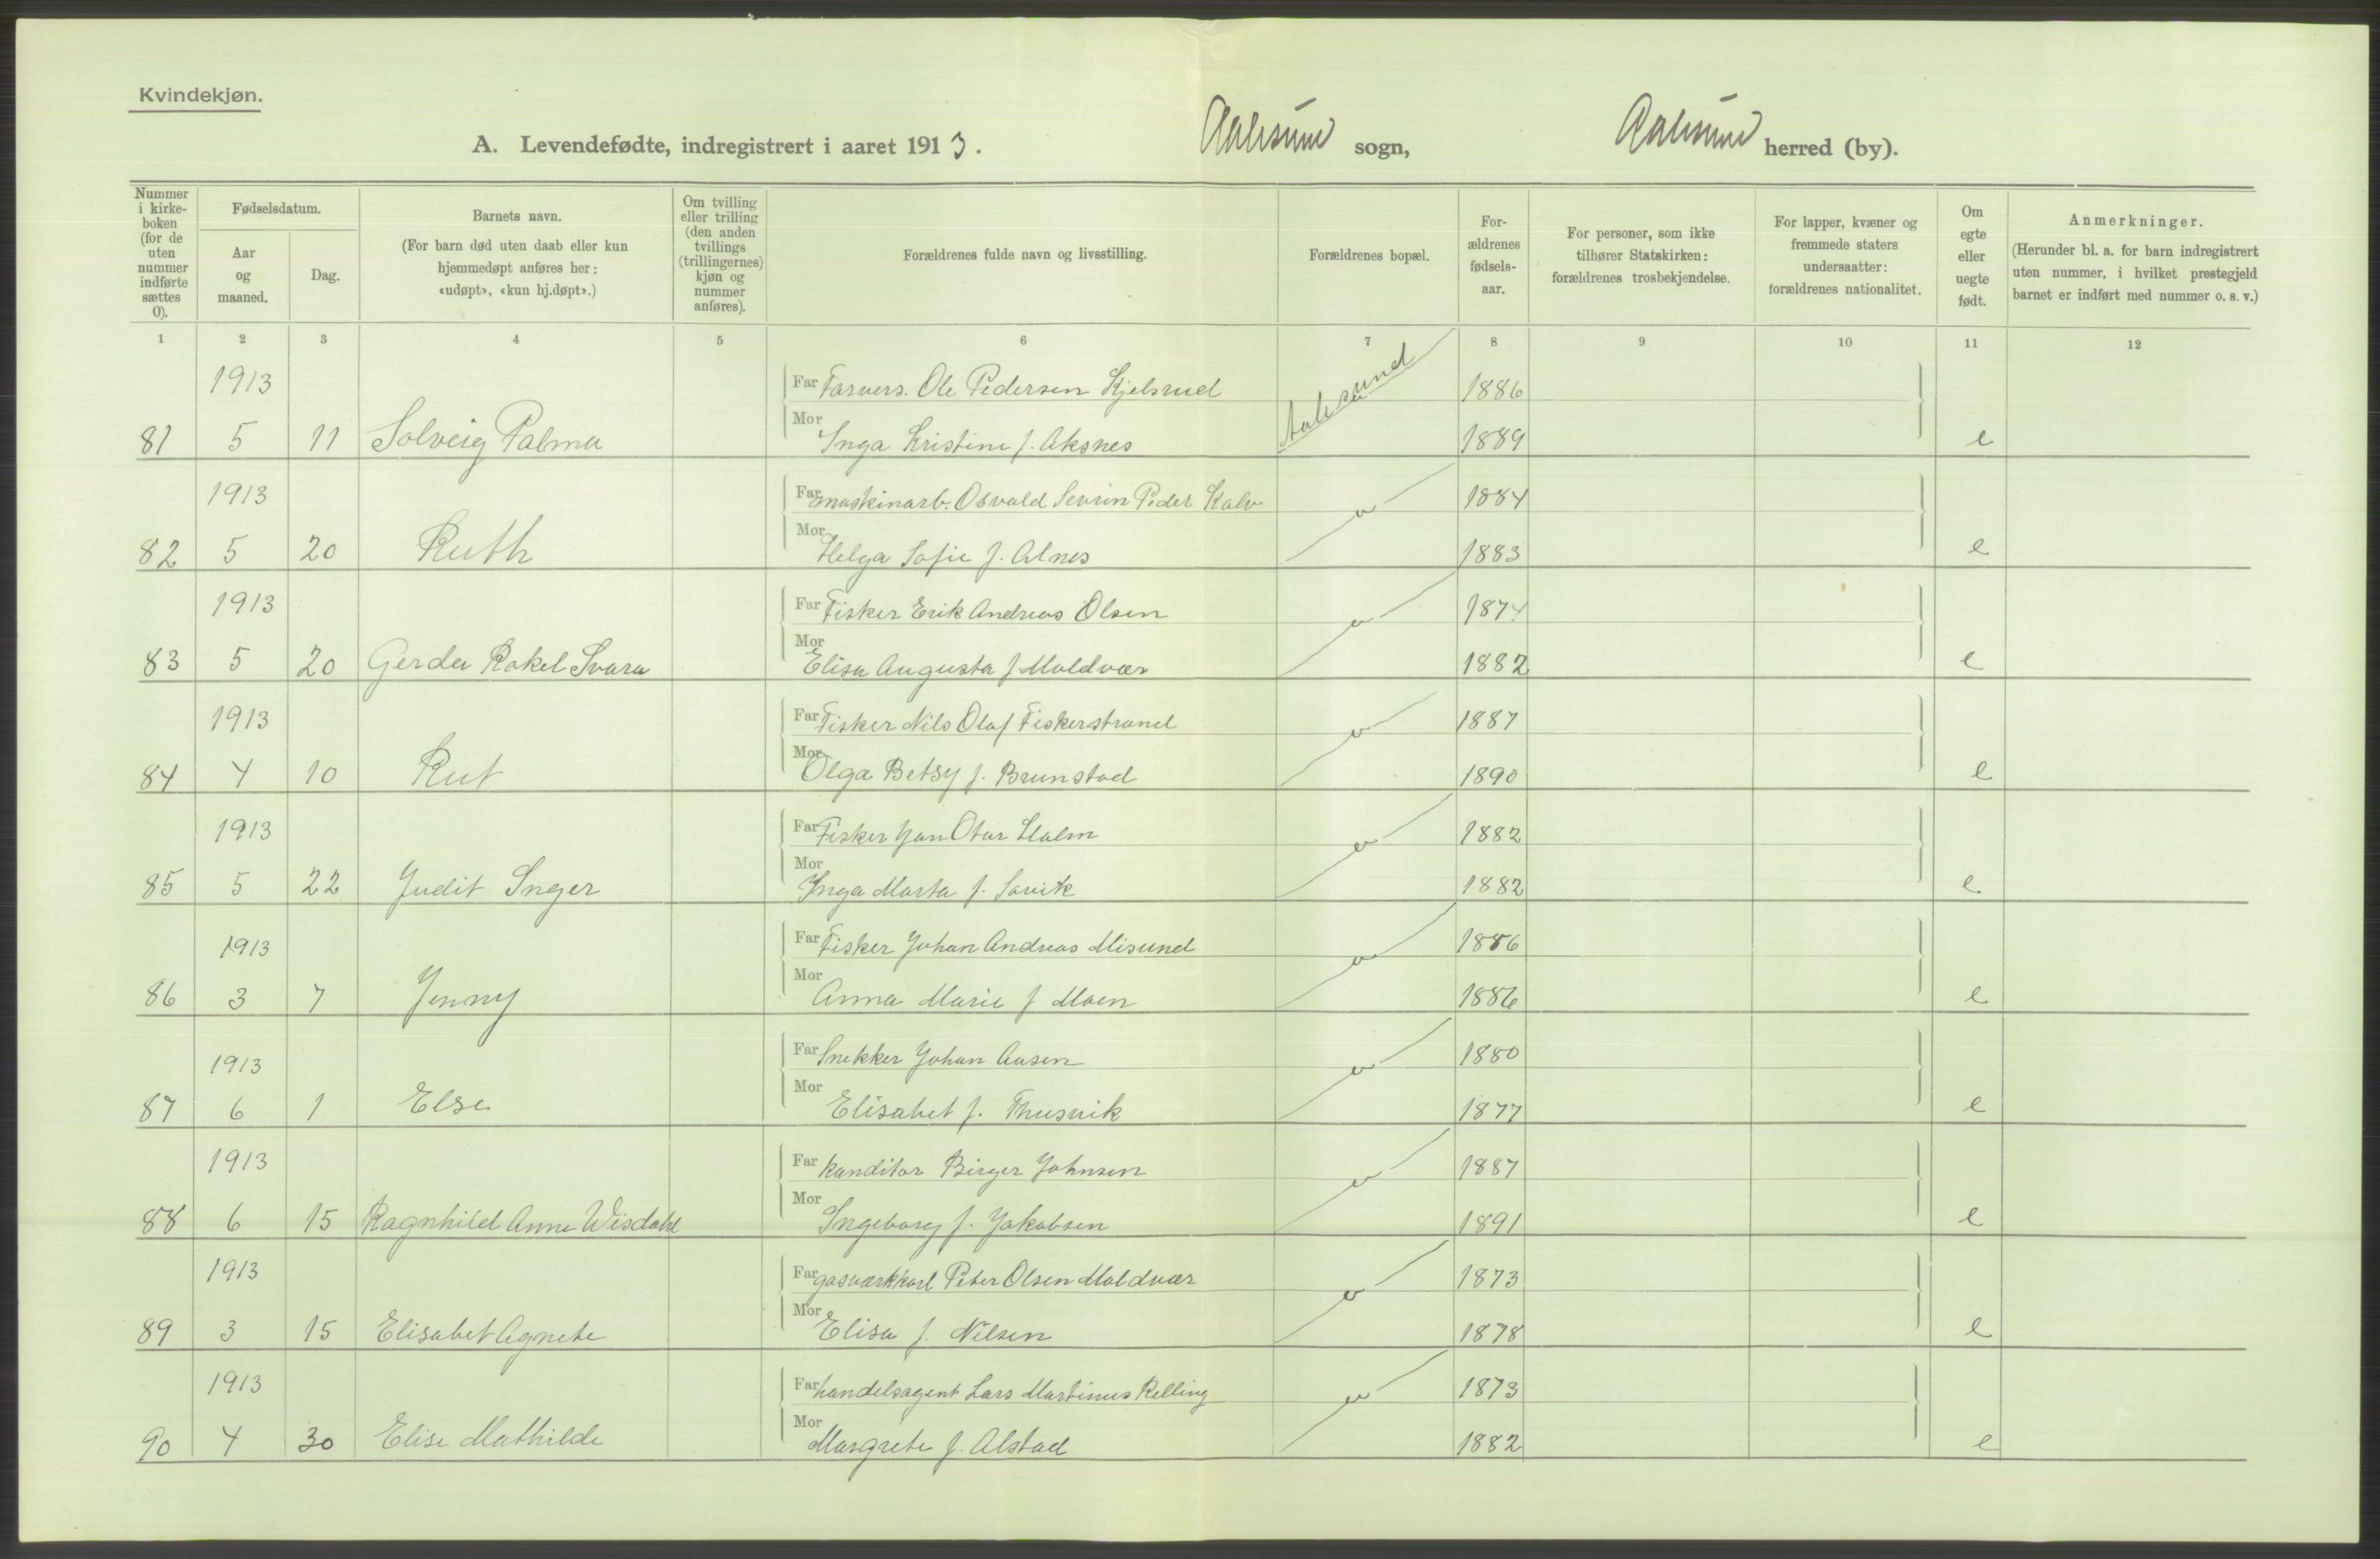 Kvindekjøn.
A. Levendefødte, indregistrert i aaret 1913. Aalesund sogn, Aalesund herred (by).
Nummer i kirke-boken (for de uten nummer indførte sættes 0).
Fødselsdatum.
Aar og maaned.
Dag.
Barnets navn.
(For barn død uten daab eller kun hjemmedøpt anføres her: «udøpt», «kun hj.døpt».)
Om tvilling eller trilling (den anden tvillings (trillingernes) kjøn og nummer anføres).
Forældrenes fulde navn og livsstilling.
Forældrenes bopæl.
For-ældrenes fødsels-aar.
For personer, som ikke tilhører Statskirken: forældrenes trosbekjendelse.
For lapper, kvæner og fremmede staters undersaatter: forældrenes nationalitet.
Om egte eller uegte født.
Anmerkninger.
(Herunder bl. a. for barn indregistrert uten nummer, i hvilket prestegjeld barnet er indført med nummer o. s. v.)
1 2 3 4 5 6 7 8 9 10 11 12
1913 Far Farvers. Ole Pedersen Kjelsrud Aalesund 1886
81 5 11 Solveig Palma Mor Inga Kristine f. Aksnes 1889 e
1913 Far maskinarb. Osvald Sevrin Peder Kalv 1884
82 5 20 Ruth Mor Helga Sofie f. Alnes 1883 e
1913 Far Fisker Erik Andreas Olsen 1874
83 5 20 Gerda Rakel Svara Mor Elisa Augusta f Moldvær 1882 e
1913 Far Fisker Nils Olaf Fiskerstrand 1887
84 4 10 Rut Mor Olga Betsy f. Brunstad 1890 e
1913 Far Fisker Jan Otar Holm 1882
85 5 22 Judit Inger Mor Inga Marta f. Savik 1882 e
1913 Far Fisker Johan Andreas Misund 1886
86 3 7 Jenny Mor Anna Marie f Moen 1886 e
1913 Far Snekker Johan Aasen 1880
87 6 1 Else Mor Elisabet f. 1877 e
1913 Far kanditor Birger Johnsen 1887
88 6 15 Ragnhild Anne Wisdahl Mor Ingeborg f. Jakobsen 1891 e
1913 Far gasværkkarl Peter Olsen Moldvær 1873
89 3 15 Elisabet Agnete Mor Elisa f. Nilsen 1878 e
1913 Far handelsagent Lars Martinus Relling 1873
90 4 30 Elise Mathilde Mor Margrete f. Alstad 1882 e